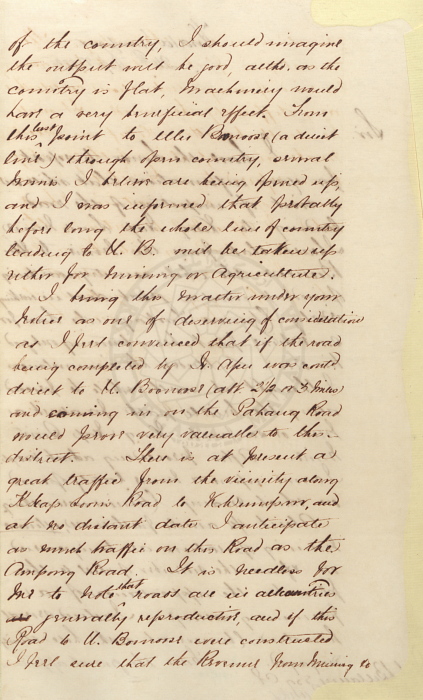 of the country, I should imagine
the output will be good, altho. as the
country is flat, Machinery would
have a very beneficial effect. From
this last point to Ulu Bonoose (a direct
line) through fine country, several
mines I believe are being opened up,
and I was informed that probably
before long the whole line of country
leading to U. B. will be taken up
either for mining or Agriculture.
I bring this matter under your
notice as one of deserving of consideration
as I feel convinced that if the road
being completed by was contd
direct to U. Bonoose (abt 2½ or 3 miles)
and coming in on the Pahang Road
would prove very valuable to this
district. There is at present a
great traffic from the vicinity along
Road to and
at no distant date I anticipate
as much traffic on this Road as the
Ampong Road. It is needless for
me to note that roads are in all countries
generally reproductive, and if this
Road to U. Bonoose were constructed
I feel sure that the Revenue from Mining to